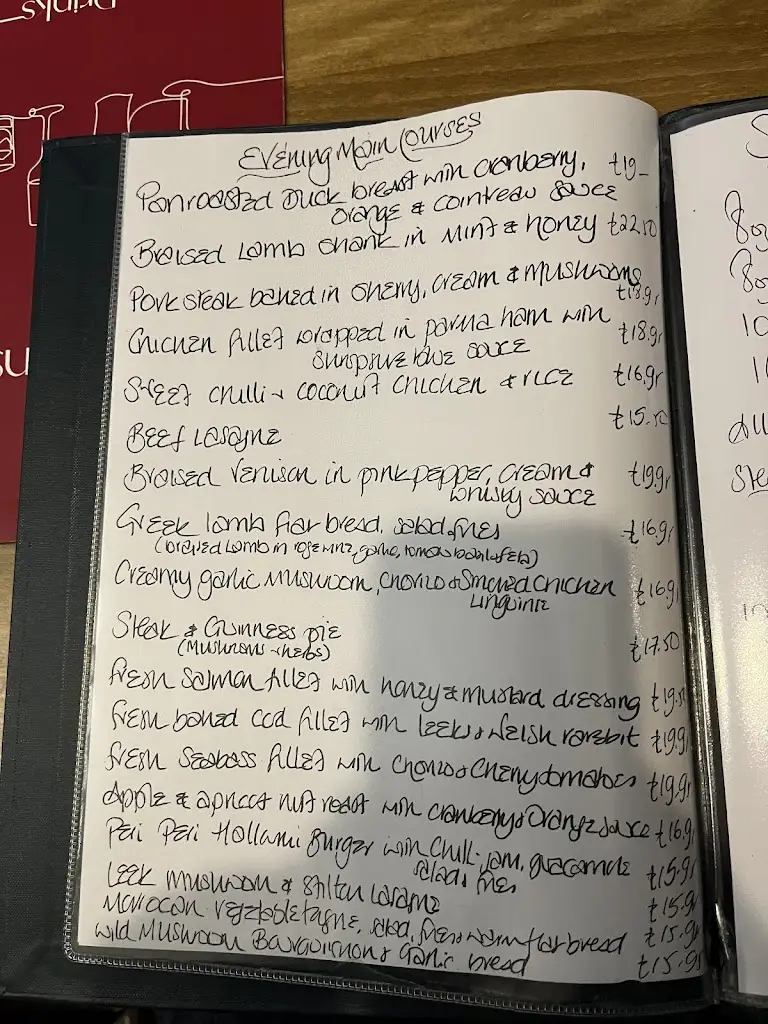 Drinks
Evening Main Courses
Panroasted Duck breast with cranberry, £19_
orange & cointreau sauce
Braised Lamb shank in Mint & honey £22.50
Pork steak baked in sherry, cream & Mushrooms
£18.9
Chicken fillet wrapped in parma ham with £18.9
sauce
Sweet chilli & coconut chicken & rice £16.9
Beef Lasagne £15.50
Braised Venison in pink pepper, cream & £19.9
whisky sauce
Greek lamb flat bread, salad, fries £16.9
(braised lamb in garlic,
Creamy garlic Mushroom, chorizo & smoked chicken £16.9
Linguine
Steak & Guinness pie £17.50
(Mushrooms & herbs)
Fresh Salmon fillet with honey & mustard dressing £19.5
Fresh baked cod fillet with Leeks & Welsh rarebit £19.9
Fresh Seabass fillet with chorizo & Cherry tomatoes £19.9
Apple & apricot nut roast with cranberry & Orange sauce £16.9
Peri Peri Hollami Burger with chilli jam, guacamole £15.9
salad, fries
Leek mushroom & Stilton Lasagne £15.9
Moroccan vegetable tagine, salad, fries & warm flat bread £15.9
Wild Mushroom Bourguignon & Garlic bread £15.9